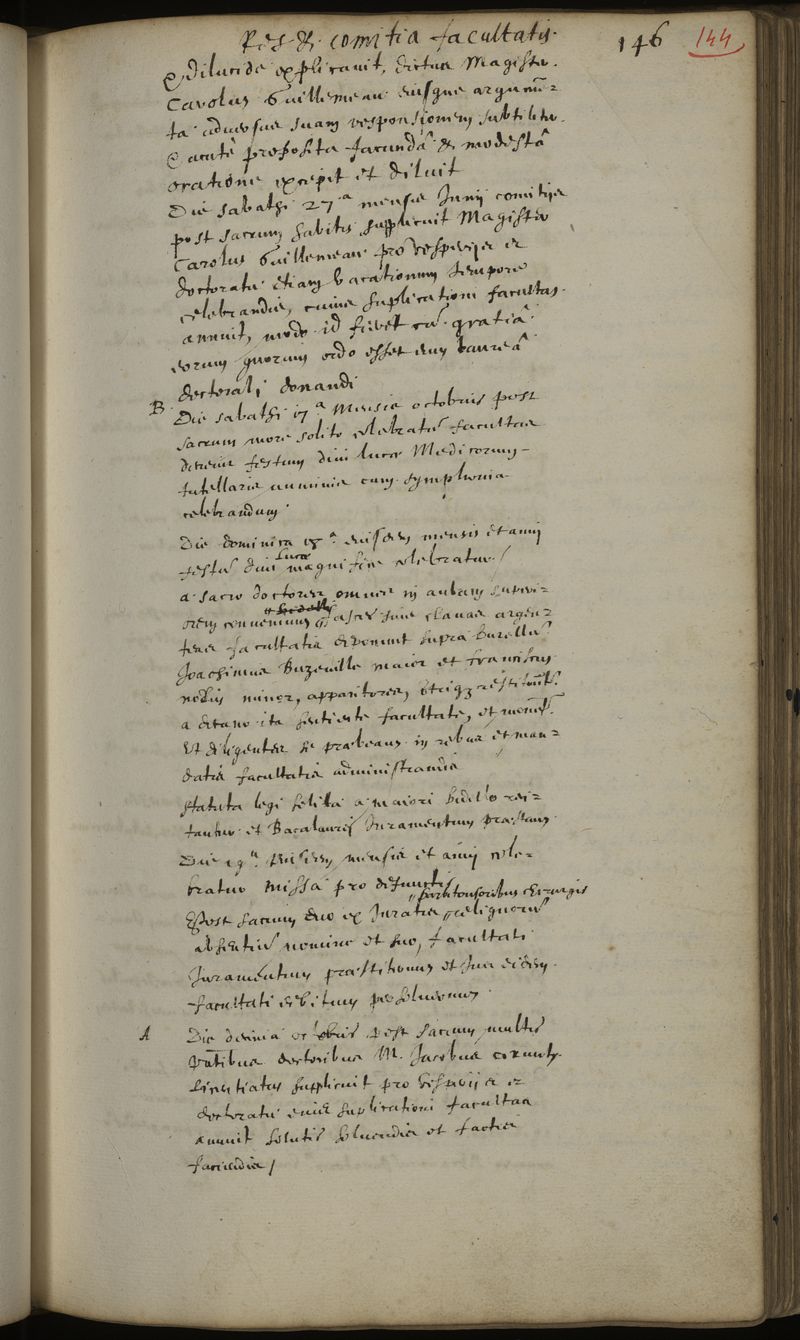 Res & comitia facultatis.
146 144
& dilucide explicauit, dictus Magister
Carolus Guillemeau eiusque argumen=
ta aduersus suam responsionem subtiliter
& acutè proposita facundâ & modestâ
oratione excepit et diluit
Die sabathi 27.ª mensis Junij comitijs
post sacrum habitis supplicuit Magister
Carolus Guillemeau pro vesperijs et
doctoratu etiam vacationum tempore
celebrandis, cuius suplicationi facultas
annuit, modo id fieret cū gratiâ
eorum quorum ordo esset eius laureâ
doctorali donandi
B Die sabathi 17ª Mensis octobris post
sacrum more solito celebratū facultas
decreuit festum diui lucæ Medicorum
tutellaris numinis cum symphonia
celebrandum.
Die dominica 18ª eiusdem mensis et anni
festū diui Lucæ magnifice celebratur /
a sacro doctores omnes in aulam superi=
orem conueniunt, suas clauas argen=
teas facultatis deponunt supra burellū
Joachimus Buzeville maior et franciscus
minor, apparitores, utriq; restituunt.
a decano ita sentiente facultate, et
Vt diligenter se præbeant in rebus et man=
datis facultatis administrandis
statuta legi solita a maiori bidello reci=
tantur et Bacalaurei Juramentum præstant.
Die 19ª eiusdem mensis et anni cele=
bratur Missa pro defunctis
Post sacrum duo ex Juratis barbitonsoribus chirurgis reliquorū
absentiū nomine et suo, facultati
Juramentum præstiterunt et Jus eidem
facultati debitum persoluerunt.
A Die decima octobris post sacrum multis
doctoribus M. Jacobus
licentiatus supplicuit pro vesperijs et
doctoratu cuius suplicationi facultas
annuit solutis soluendis et factis
faciendis /